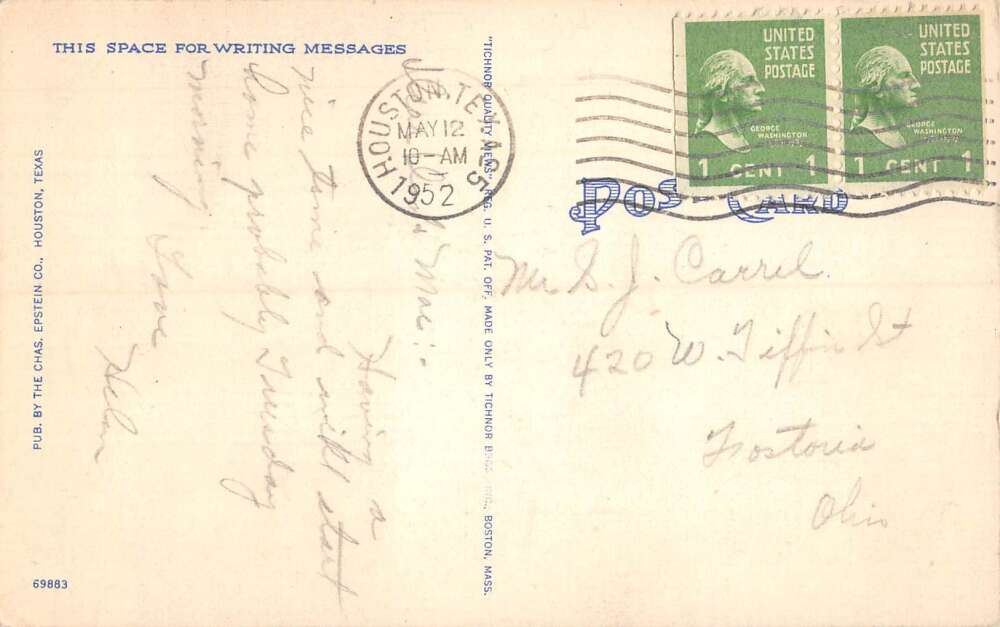 THIS SPACE FOR WRITING MESSAGES
& Mae:-
Having a
nice time and will start
home probably Tuesday
morning
Love
Helen
PUB. BY THE CHAS. EPSTEIN CO., HOUSTON, TEXAS
69883
"TICHNOR QUALITY VIEWS" REG. U. S. PAT. OFF. MADE ONLY BY TICHNOR BROS. INC., BOSTON, MASS.
HOUSTON, TEXAS
MAY 12
10-AM
1952
UNITED
STATES
POSTAGE
GEORGE
WASHINGTON
1 CENT 1
UNITED
STATES
POSTAGE
GEORGE
WASHINGTON
1 CENT 1
POST CARD
Mr S. J. Carrel
420 W. Tiffin St
Fostoria
Ohio